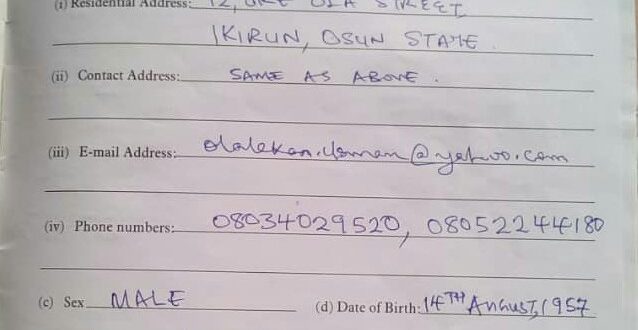 (i) Residential Address: 12,
IKIRUN, OSUN STATE
(ii) Contact Address: SAME AS ABOVE.
(iii) E-mail Address: olalekan.usman@yahoo.com
(iv) Phone numbers: 08034029520, 08052244180
(c) Sex MALE (d) Date of Birth: 14TH AUGUST, 1957